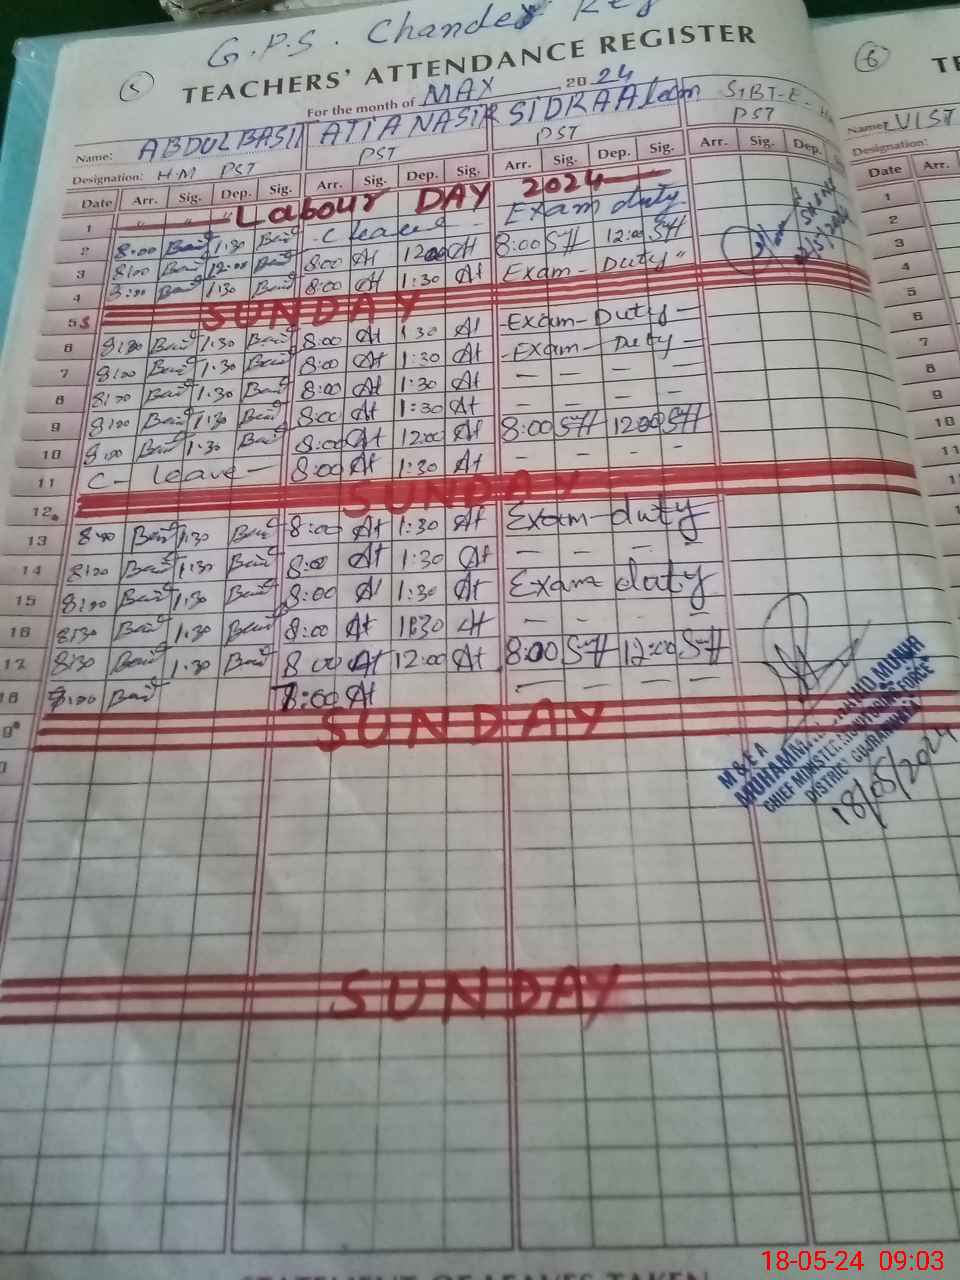 G.P.S. Chander
5
TEACHERS' ATTENDANCE REGISTER
For the month of MAY 2024
Name: ABDUL BASIT ATIA NASIR SIDRA Aleem SIBT-E-
Designation: H.M PST PST PST PST
Date Arr. Sig. Dep. Sig. Arr. Sig. Dep. Sig. Arr. Sig. Dep. Sig. Arr. Sig. Dep.
1 Labour DAY 2024
2 8:00 Basit 1:30 Basit C leave Exam duty
3 8:00 Basit 12:00 Basit 8:00 At 12:00 At 8:00 SH 12:00 SH
4 8:00 Basit 1:30 Basit 8:00 At 1:30 At Exam-Duty
5 SUNDAY
6 8:00 Basit 1:30 Basit 8:00 At 1:30 At -Exam-Duty-
7 8:00 Basit 1:30 Basit 8:00 At 1:30 At -Exam-Duty-
8 8:00 Basit 1:30 Basit 8:00 At 1:30 At - - - -
9 8:00 Basit 1:30 Basit 8:00 At 1:30 At - - - -
10 8:00 Basit 1:30 Basit 8:00 At 12:00 At 8:00 SH 12:00 SH
11 C- leave- 8:00 At 1:30 At - - - -
12 SUNDAY
13 8:00 Basit 1:30 Basit 8:00 At 1:30 At Exam-duty
14 8:00 Basit 1:30 Basit 8:00 At 1:30 At - - - -
15 8:00 Basit 1:30 Basit 8:00 At 1:30 At Exam duty
16 8:30 Basit 1:30 Basit 8:00 At 1:30 At - - - -
17 8:30 Basit 1:30 Basit 8:00 At 12:00 At 8:00 SH 12:00 SH
18 8:00 Basit 7:00 At - - - -
SUNDAY
M&EA
CHIEF MINISTER MONITORING FORCE
DISTRICT GUJRANWALA
18/05/2024
SUNDAY
6
Name:
Designation:
Date Arr.
1
2
3
4
5
6
7
8
9
10
11
18-05-24 09:03